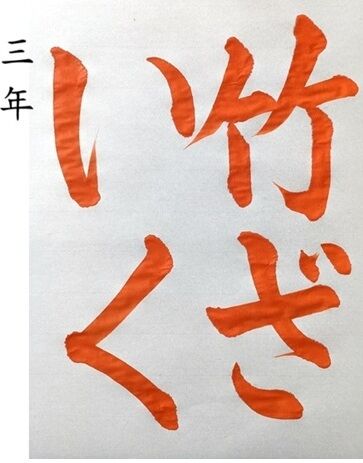 竹ざ
いく
三年